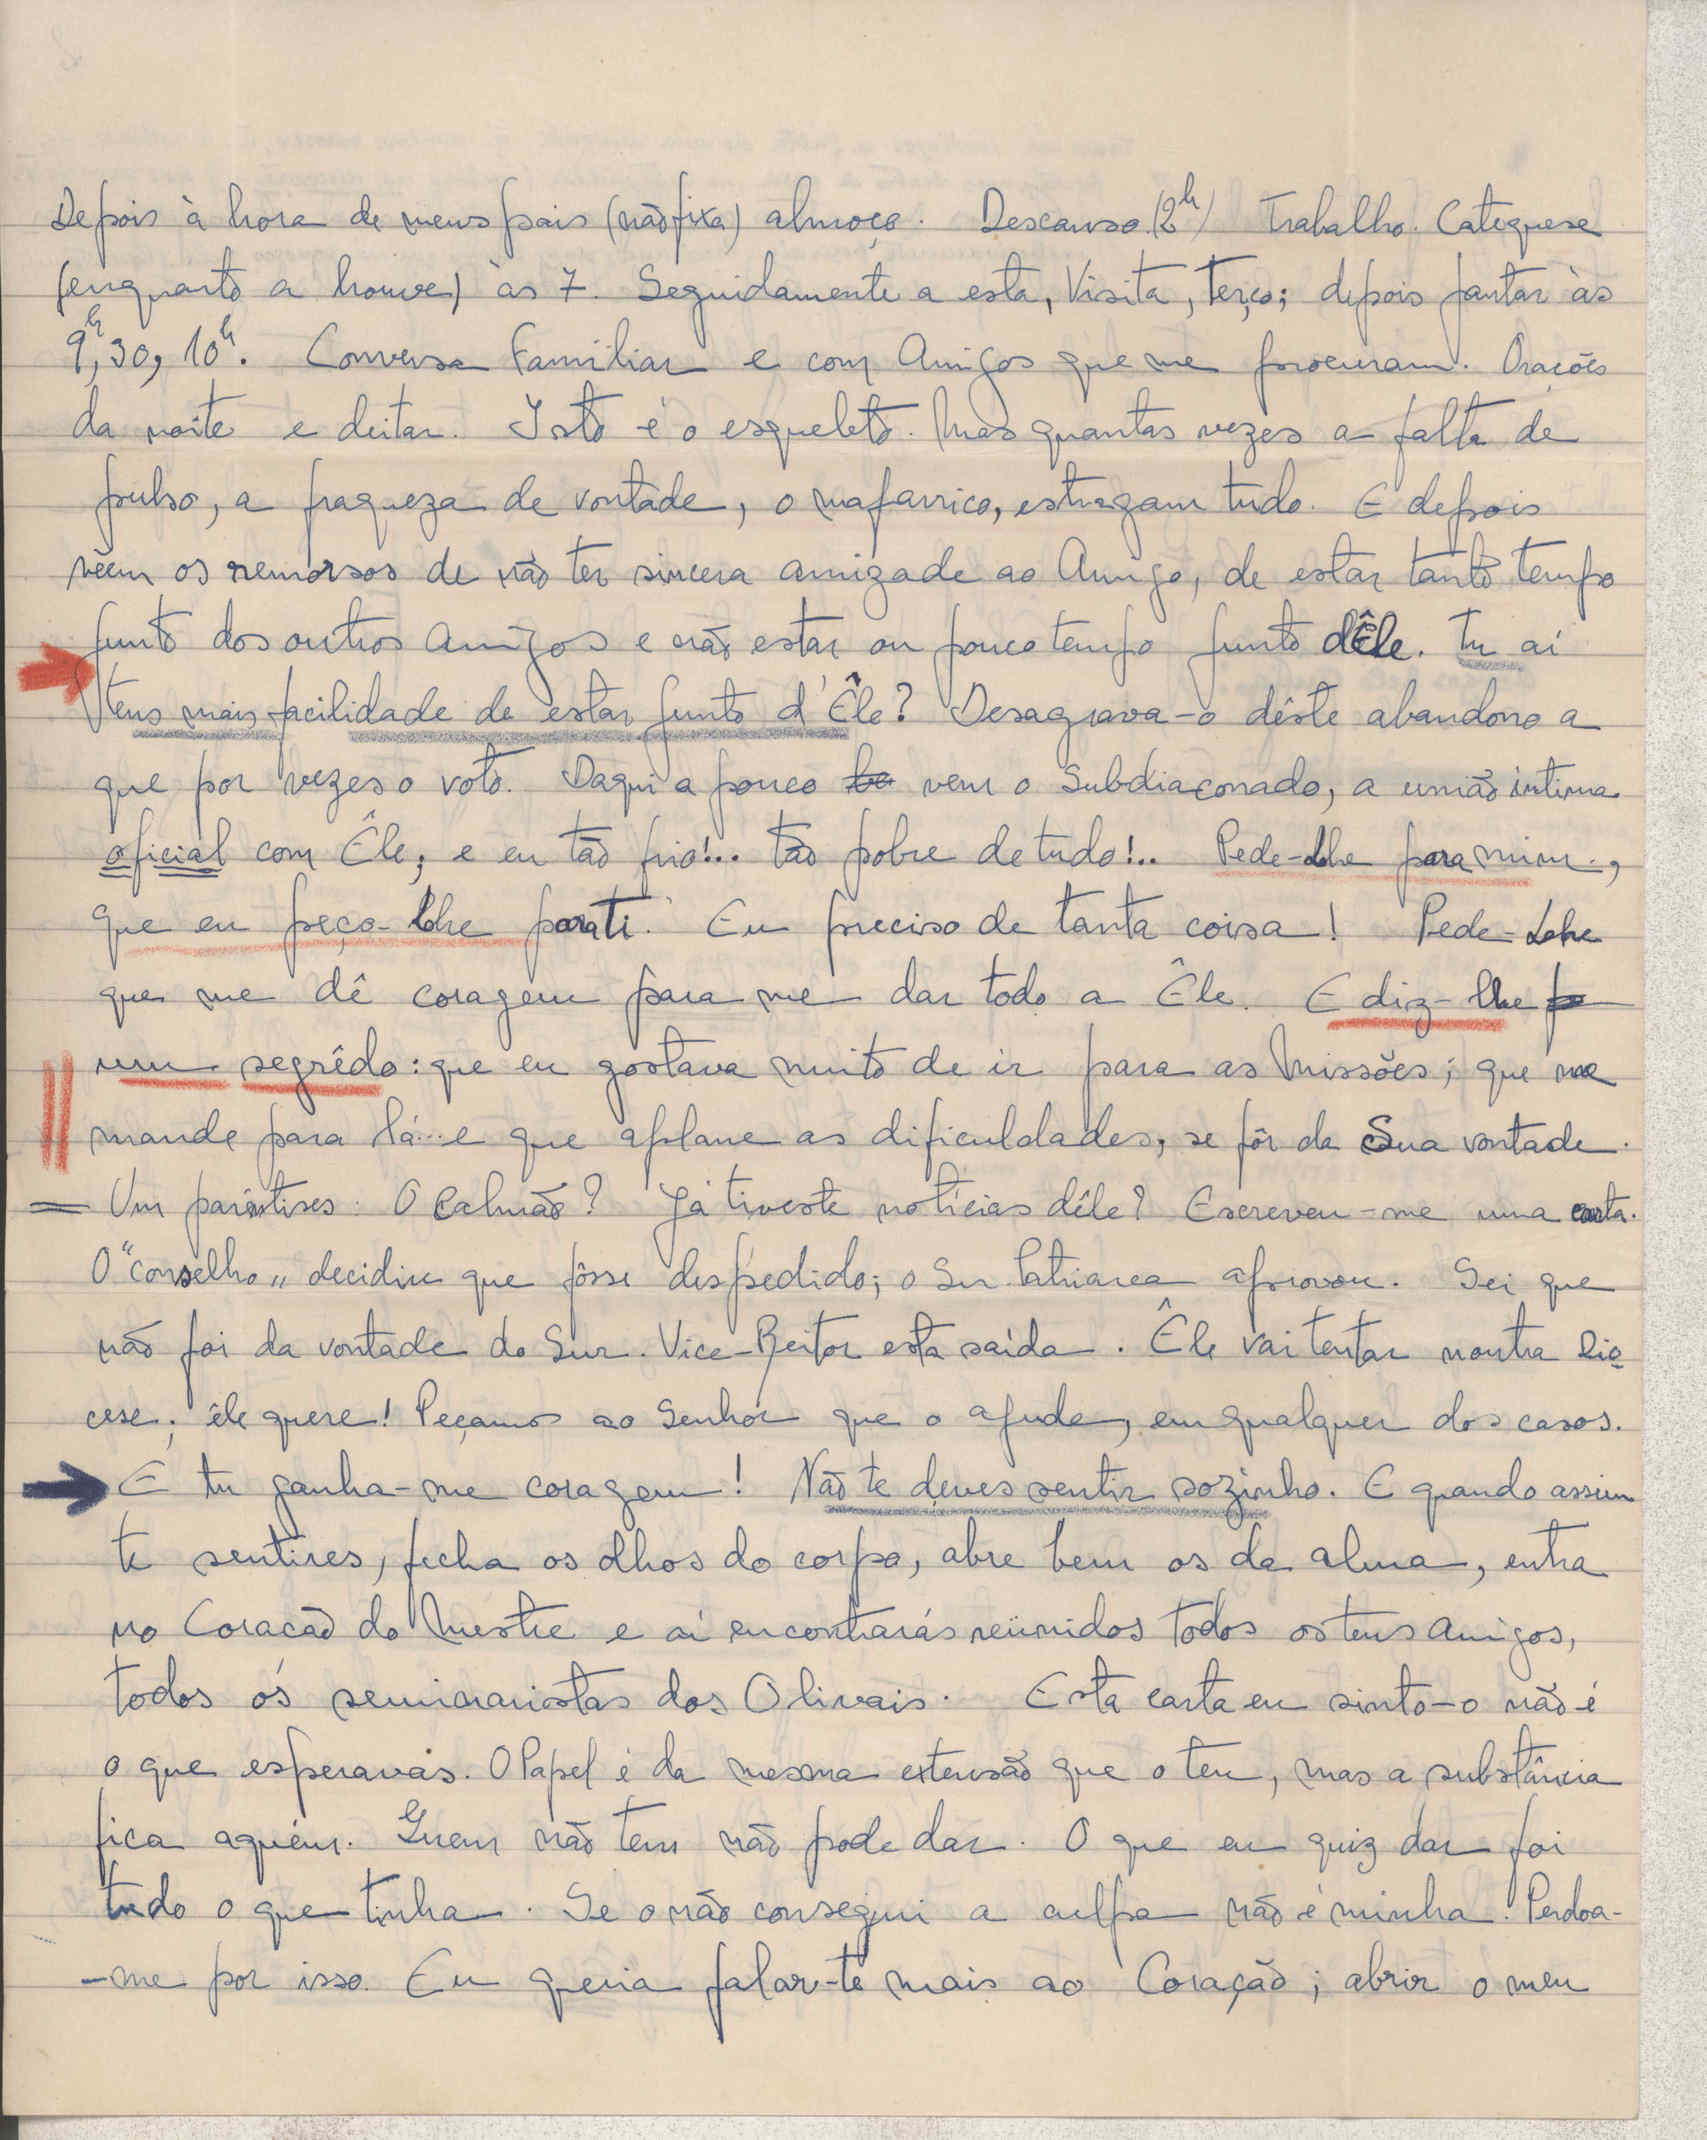 Depois à hora de meus pais (não fixa) almoço. Descanso (2h) Trabalho. Catequese
(enquanto a houve) às 7. Seguidamente a esta, Visita, Terço; depois jantar às
9h,30, 10h. Conversa Familiar e com Amigos que me procuram. Orações
da noite e deitar. Isto é o esqueleto. Mas quantas vezes a falta de
pulso, a fraqueza de vontade, o mafarrico, estragam tudo. E depois
vêem os remorsos de não ter sincera amizade ao Amigo, de estar tanto tempo
junto dos outros Amigos e não estar ou pouco tempo junto dÊle. Tu aí
tens mais facilidade de estar junto d'Êle? Desagrava-o dêste abandono a
que por vezes o voto. Daqui a pouco vem o Subdiaconado, a união íntima
oficial com Êle, e eu tão frio!.. tão pobre de tudo!.. Pede-Lhe para mim.,
que eu peço-Lhe para ti. Eu preciso de tanta coisa! Pede-Lhe
que me dê coragem para me dar todo a Êle. E diz-Lhe
um segrêdo: que eu gostava muito de ir para as Missões; que me
mande para lá... e que aplane as dificuldades, se fôr da Sua vontade.
= Um parêntises: O Calmão? Já tiveste notícias dêle? Escreveu-me uma carta.
O "conselho" decidiu que fôsse despedido; o Snr Patriarca aprovou. Sei que
não foi da vontade do Snr. Vice-Reitor esta saída. Êle vai tentar noutra Dio
cese; êle quere! Peçamos ao Senhor que o ajude, em qualquer dos casos.
E tu ganha-me coragem! Não te deves sentir sozinho. E quando assim
te sentires, fecha os olhos do corpo, abre bem os da alma, entra
no Coracão do Mestre e aí encontrarás reünidos todos os teus amigos,
todos os seminaristas dos Olivais. Esta carta eu sinto-o não é
o que esperavas. O Papel é da mesma extensão que o teu, mas a substância
fica aquém. Quem não tem não pode dar. O que eu quiz dar foi
tudo o que tinha. Se o não consegui a culpa não é minha. Perdoa-
-me por isso. Eu queria falar-te mais ao Coração; abrir o meu